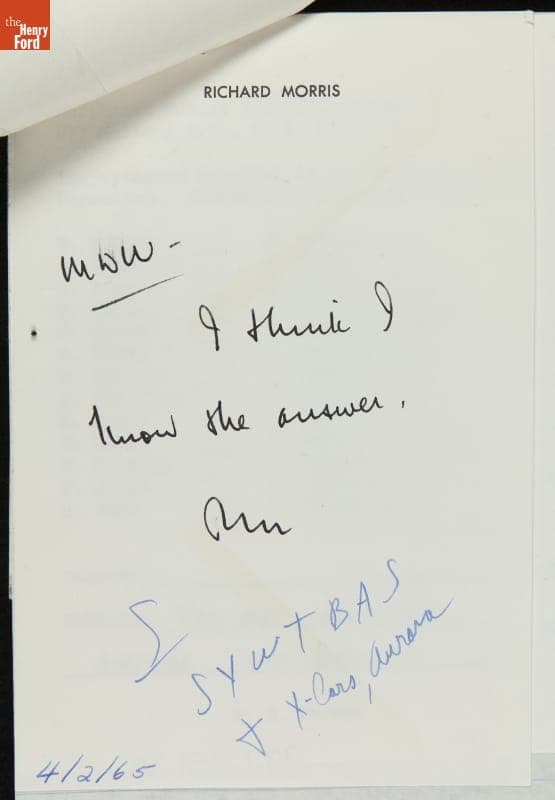 the
Henry
Ford
RICHARD MORRIS
MDW -
I think I
know the answer.
S Y W T B A S
+ X-Cars, Aurora
4/2/65